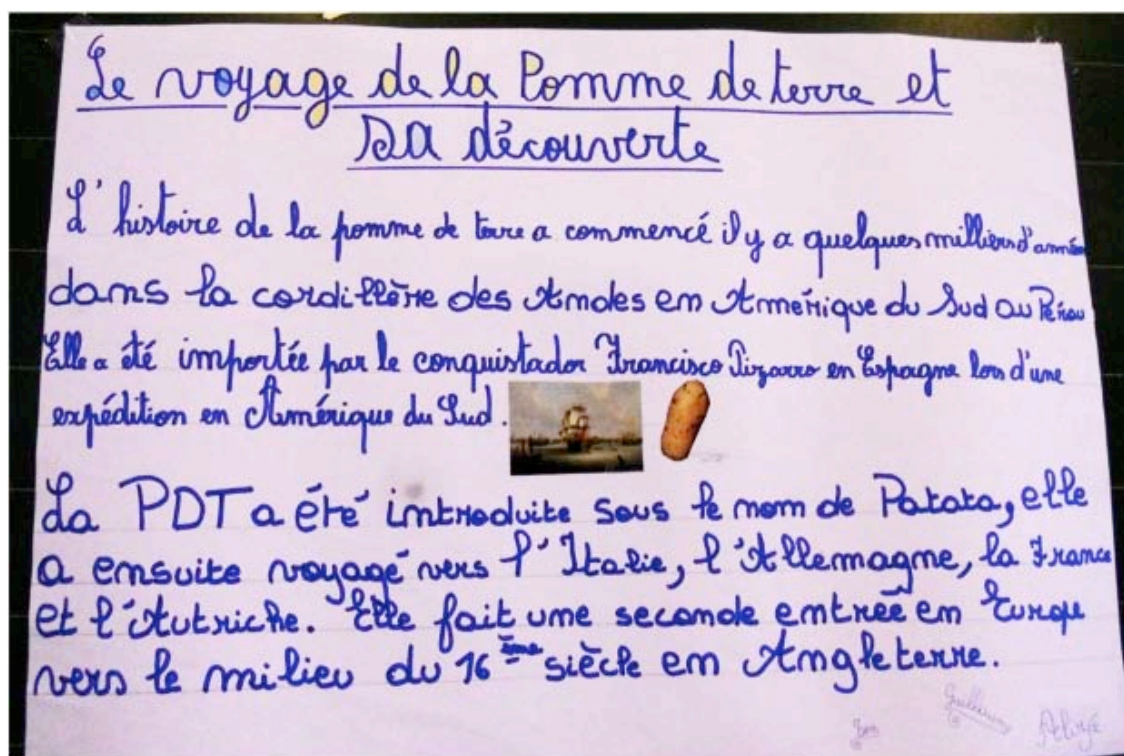 Le voyage de la Pomme de terre et
sa découverte
L'histoire de la pomme de terre a commencé il y a quelques milliers d'année
dans la cordillère des Andes en Amérique du Sud au Pérou
Elle a été importée par le conquistador Francisco Pizarro en Espagne lors d'une
expédition en Amérique du Sud.
La PDT a été introduite sous le nom de Patata, elle
a ensuite voyagé vers l'Italie, l'Allemagne, la France
et l'Autriche. Elle fait une seconde entrée en Europe
vers le milieu du 16ème siècle en Angleterre.